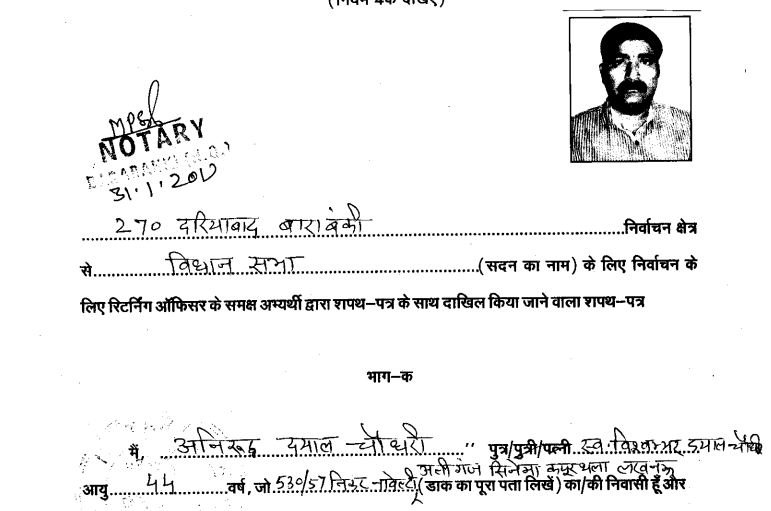 (नियम 4क देखिए)
NOTARY
31.1.2017
270 दरियाबाद बाराबंकी निर्वाचन क्षेत्र
से विधान सभा (सदन का नाम) के लिए निर्वाचन के
लिए रिटर्निंग ऑफिसर के समक्ष अभ्यर्थी द्वारा शपथ–पत्र के साथ दाखिल किया जाने वाला शपथ–पत्र
भाग–क
मैं, अनिरूद्ध दयाल चौधरी पुत्र/पुत्री/पत्नी स्व. विश्वम्भर दयाल चौधरी
अलीगंज सिनेमा कपूरथला लखनऊ
आयु 44 वर्ष, जो 530/57 निकट नावेल्टी (डाक का पूरा पता लिखें) का/की निवासी हूँ और